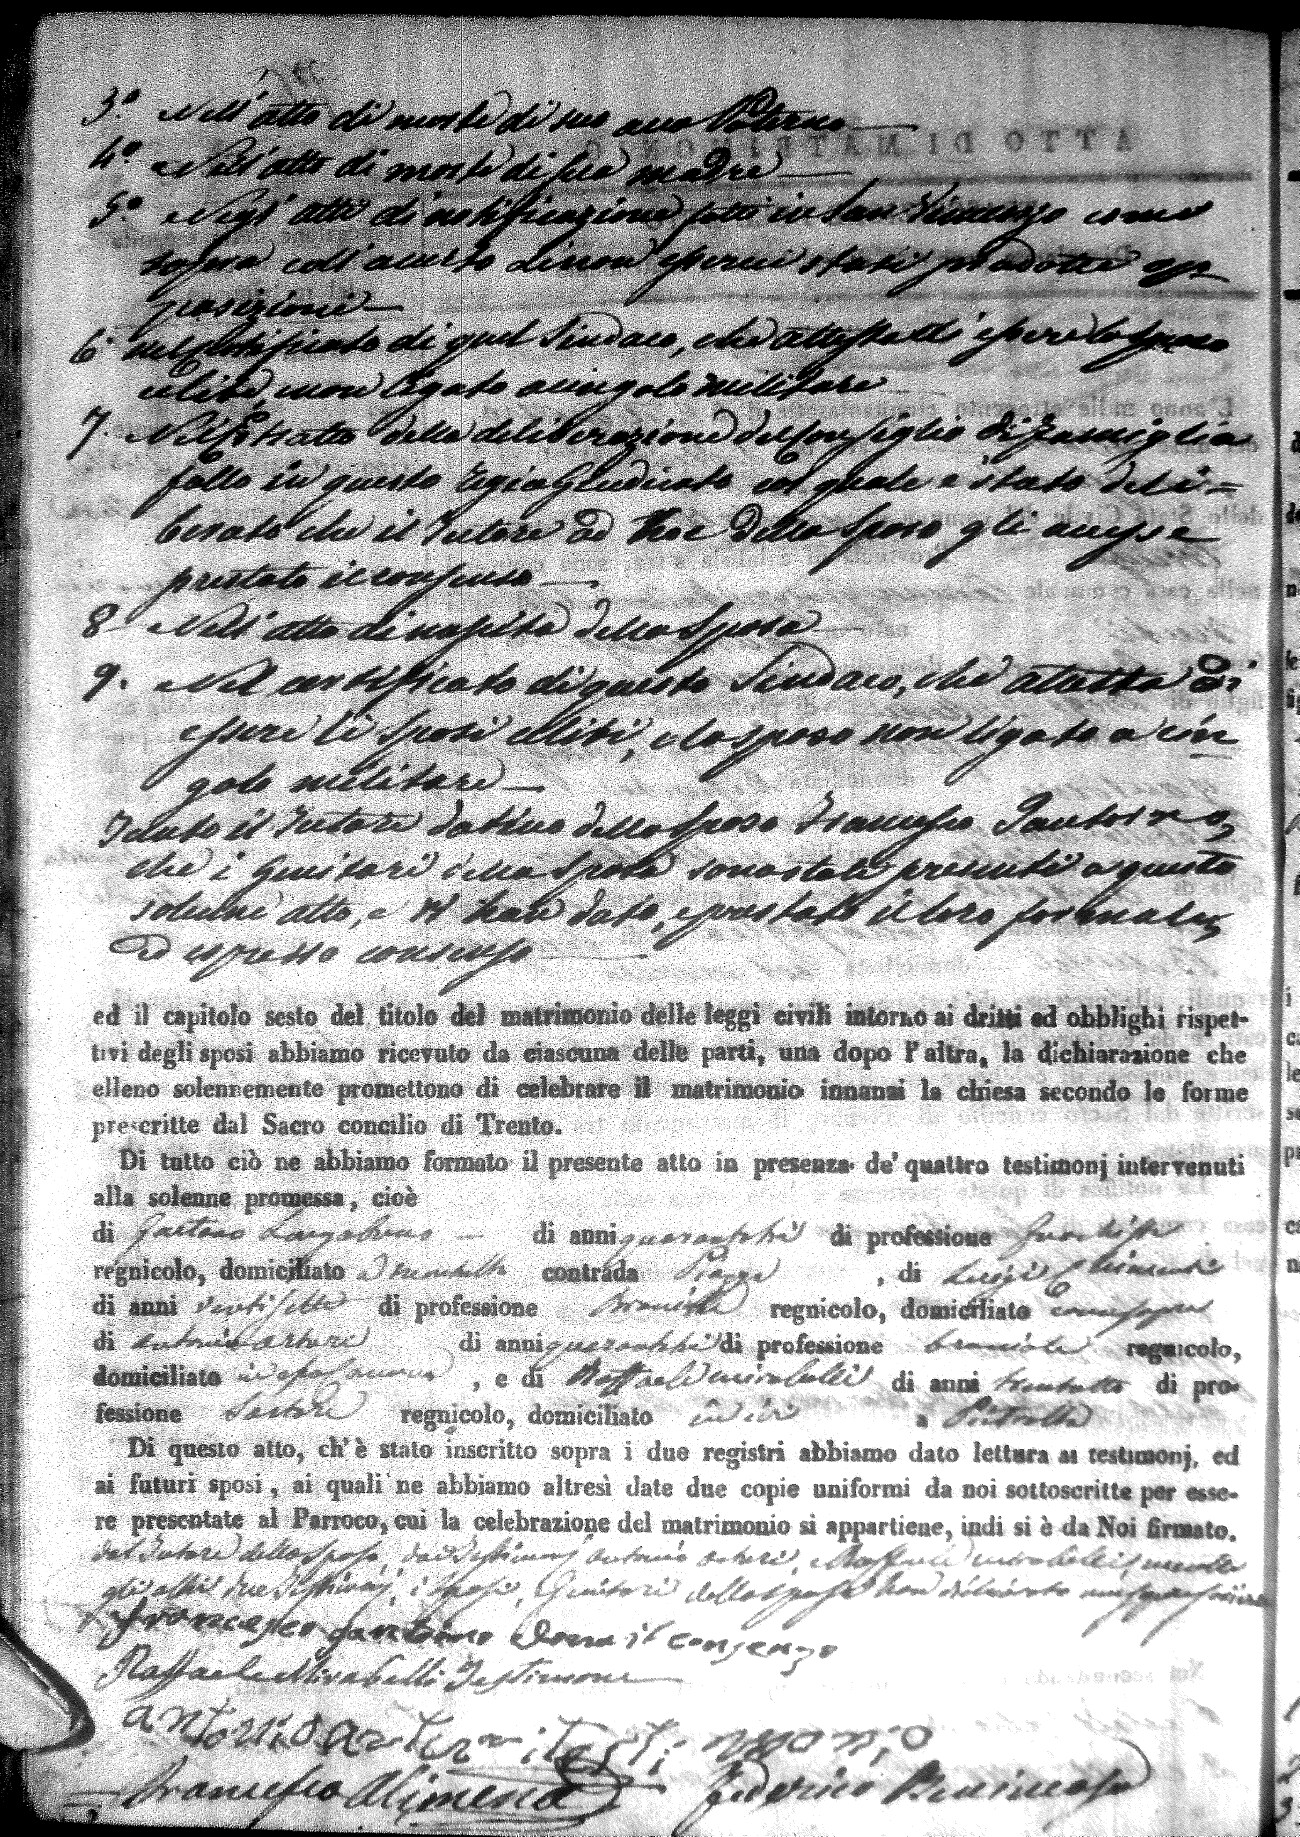 3.º Nell'atto di morte di suo avo Paterno
4.º Nell'atto di morte di sua madre
5.º Negl'atti di notificazione fatti in San Vincenzo come
sopra coll'accerto di non esserci stati prodotte op
posizioni
6. nel certificato di quel Sindaco, che attesta di essere lo sposo
celibe, e non legato a cingolo militare
7. Nell'Estratto della deliberazione del Consiglio di famiglia
fatto in questo Regio Giudicato col quale è stato deli-
berato che il Tutore ad hoc dello sposo gli avesse
prestato il consenso
8 Nell'atto di nascita della Sposa
9. Nel certificato di questo Sindaco, che attesta di
essere li sposi celibi, e lo sposo non ligato a cin
golo militare
Tanto il Tutore dativo dello sposo Francesco Santoro,
che i Genitori della sposa sono stati presenti a questo
solenne atto, e vi han dato, e prestato il loro formale,
ed espresso consenso
ed il capitolo sesto del titolo del matrimonio delle leggi civili intorno ai dritti ed obblighi rispet-
tivi degli sposi abbiamo ricevuto da ciascuna delle parti, una dopo l'altra, la dichiarazione che
elleno solennemente promettono di celebrare il matrimonio innanzi la chiesa secondo le forme
prescritte dal Sacro concilio di Trento.
Di tutto ciò ne abbiamo formato il presente atto in presenza de' quattro testimonj intervenuti
alla solenne promessa, cioè
di Gaetano di anni di professione
regnicolo, domiciliato contrada Piazza , di Luigi
di anni ventisette di professione regnicolo, domiciliato
di Antonio Arturi di anni di professione bracciale regnicolo,
domiciliato , e di Raffaele Mirabelli di anni trentotto di pro-
fessione Sartore regnicolo, domiciliato ivi a
Di questo atto, ch' è stato inscritto sopra i due registri abbiamo dato lettura ai testimonj, ed
ai futuri sposi, ai quali ne abbiamo altresì date due copie uniformi da noi sottoscritte per esse-
re presentate al Parroco, cui la celebrazione del matrimonio si appartiene, indi si è da Noi firmato.
dal Tutore dello sposo, dai Testimonj Antonio Arturi, e Raffaele Mirabelli, mentre
gli altri due Testimonj, i sposi, Genitori della sposa han dichiarato non saper scrivere
Francesco santoro Dona il consenzo
Raffaele Mirabelli Testimone
antonio arturi testimonio
Francesco Alimena Federico